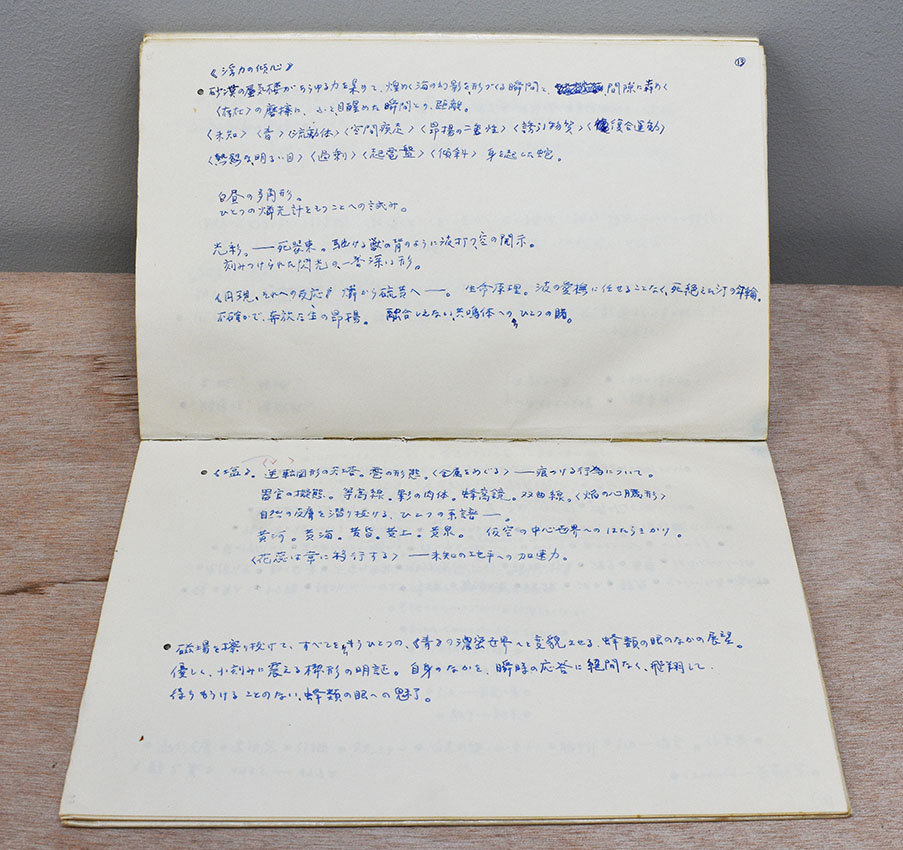 ⑬
《浮力の傾心》
● 砂漠の蜃気楼があらゆる力を集めて、煌めく海の幻影を形づくる瞬間と、間隙に蠢めく
〈存在〉の磨擦に、ふと目醒めた瞬間との、距離。
〈未知〉〈青〉〈流動体〉〈空間疾走〉〈昂揚の二重性〉〈誘引物質〉〈複合運動〉
〈無縁な明るい目〉〈過剰〉〈起電盤〉〈傾斜〉 身を起した蛇。
白昼の多角形。
ひとつの燐光計をもつことへの試み。
光彩。──死装束。駆ける獣の背のように波打つ空の開示。
刻みつけられた閃光の、一番深い形。
《円現、それへの反応》 燐から硫黄へ──。 生命原理。波の愛撫に任せることなく、死絶えた汀の年輪。
不確かで、奔放な生の昂揚。 融合しえない共鳴体への、ひとつの賭。
● 逆転図形の天塔。雪の形態。〈金属をめぐる〉──痕つける行為について。
器官の擬態。等高線。影の肉体。蜂窩鏡。双曲線。〈焔の心臓形〉
自然の皮膚を潜り抜ける、ひとつの系譜──。
黄河。黄海。黄昏。黄土。黄泉。 仮空の中心世界へのはたらきかけ。
〈花蕊は雲に移行する〉──未知の地平への加速力。
● 磁場を擦り抜けて、すべてをもうひとつの、《青》の濃密世界へと変貌させる、蜂類の眼のなかの展望。
優しく、小刻みに震える楔形の明証。自身のなかを、瞬時の応答に絶間なく、飛翔して
待ちもうけることのない、蜂類の眼への魅了。